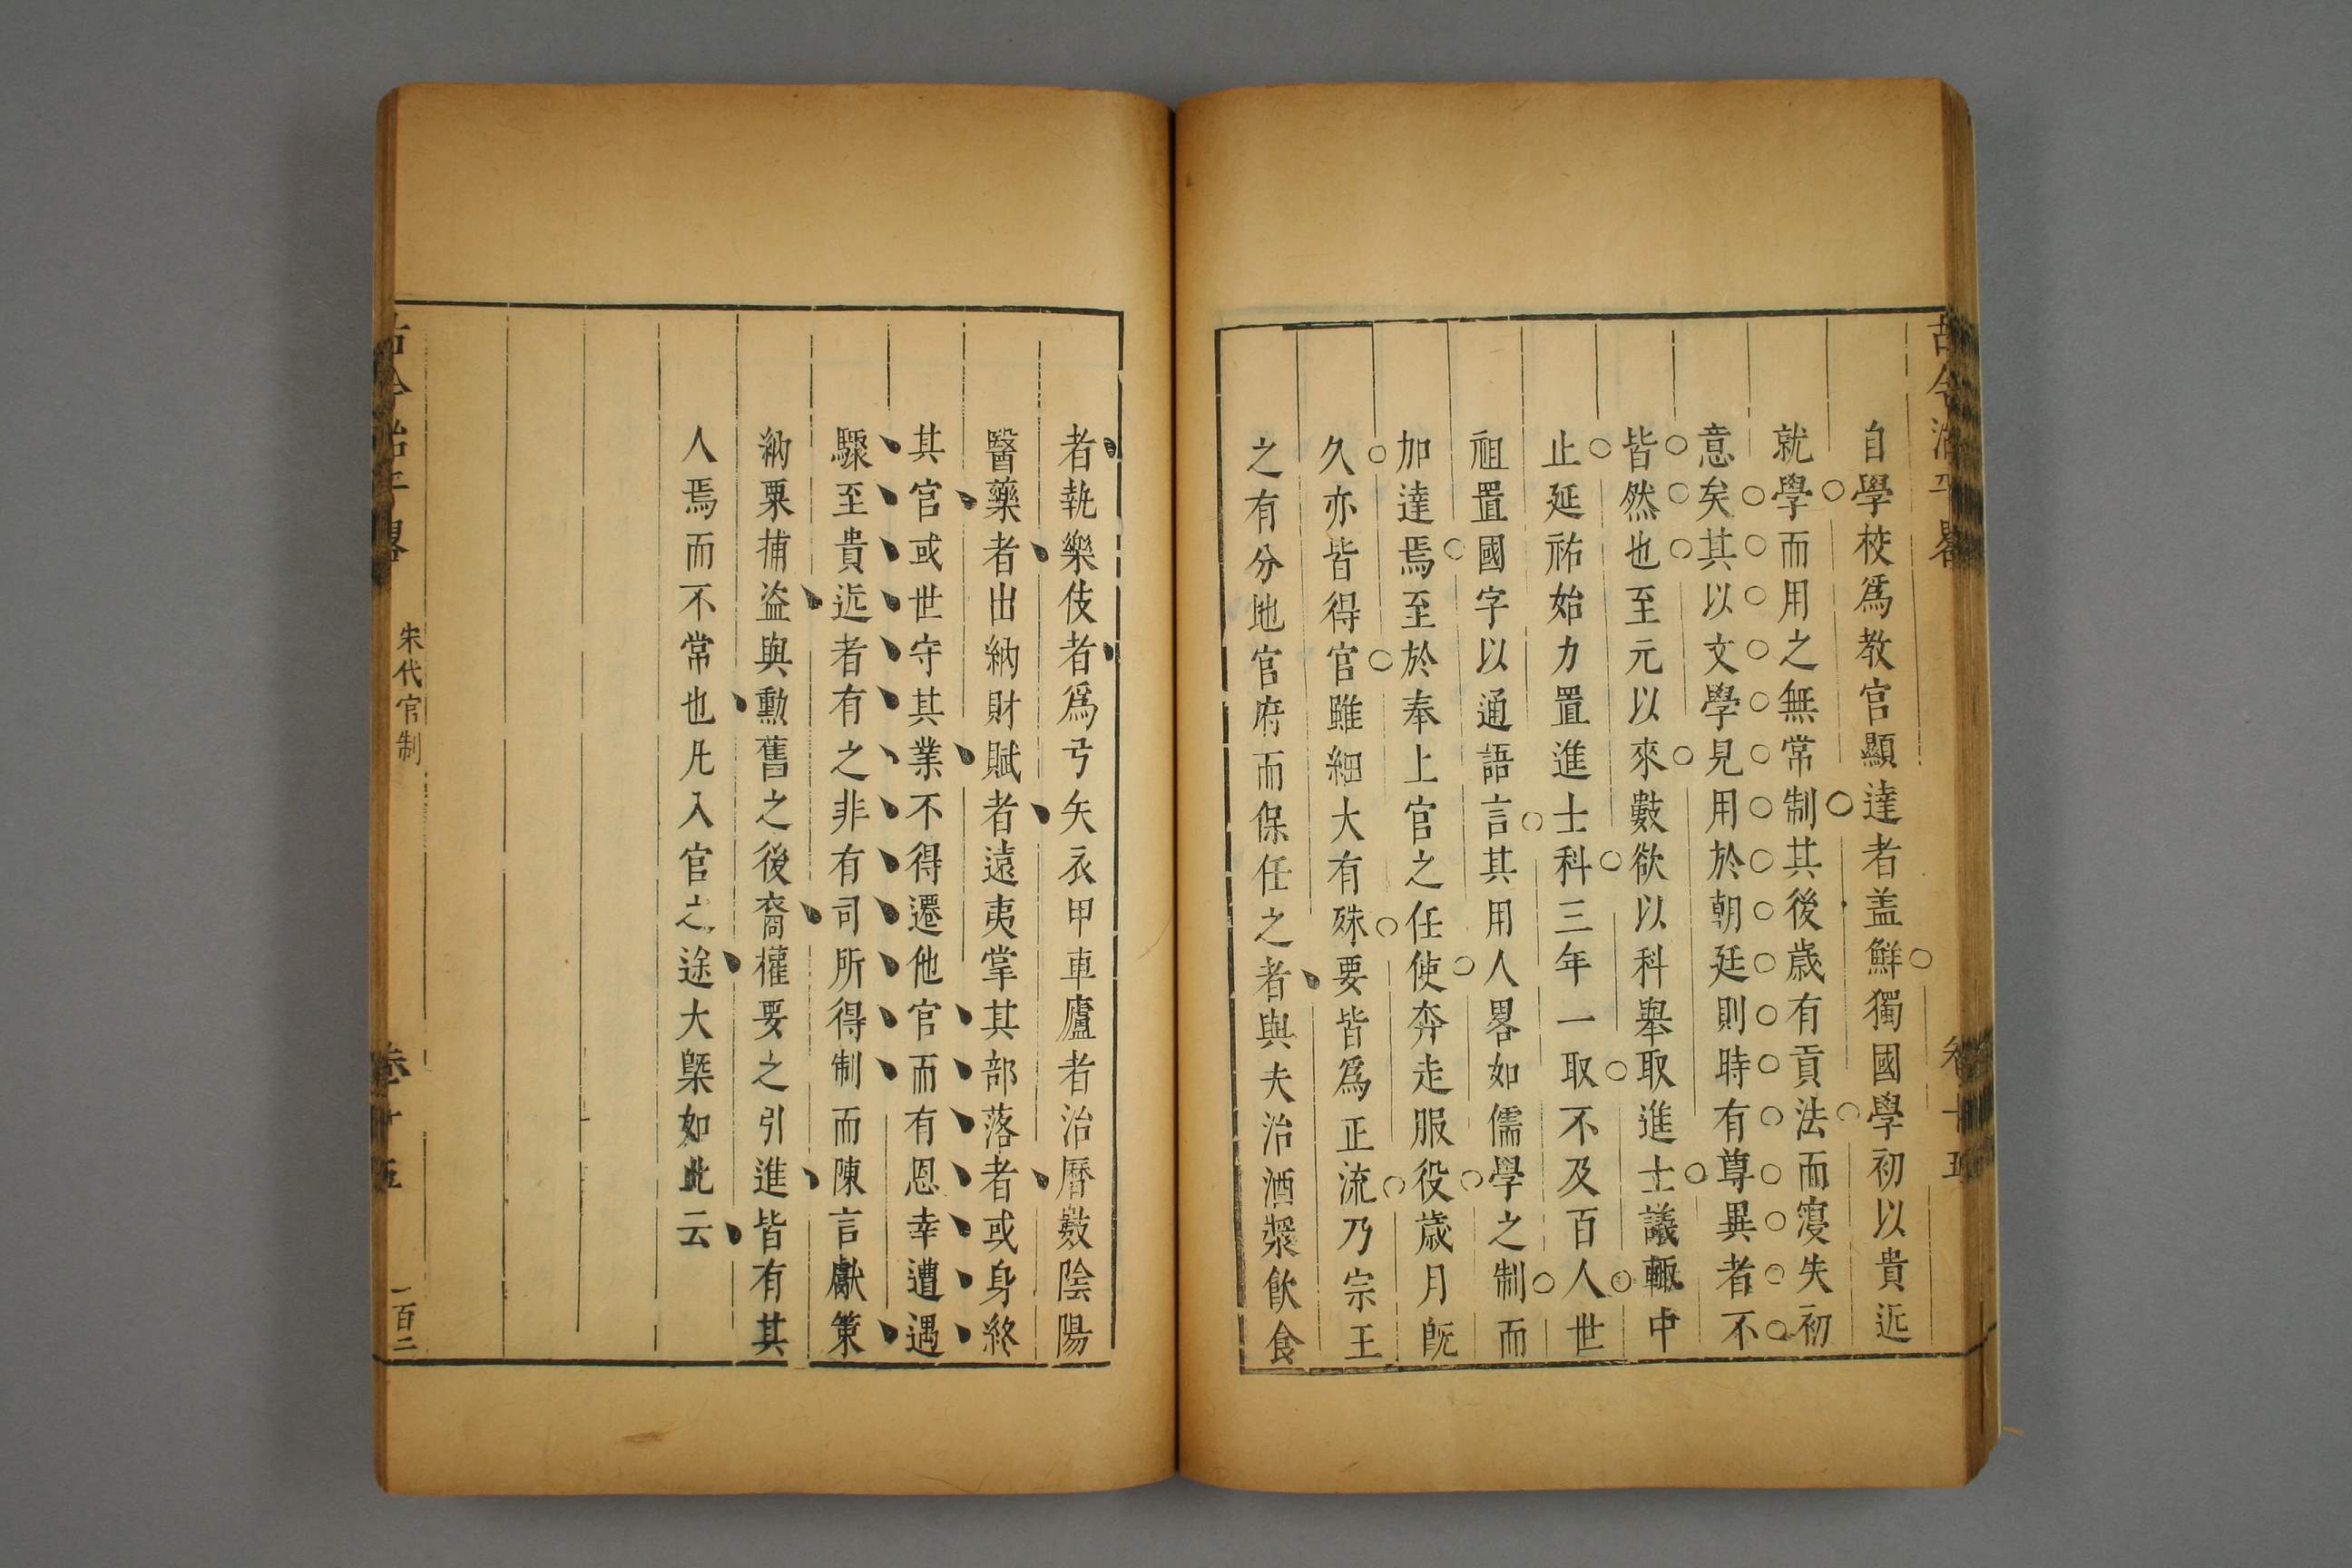 古今治平畧
卷十五
自學校爲教官顯達者盖鮮獨國學初以貴近
就學而用之無常制其後歳有貢法而寖失初
意矣其以文學見用於朝廷則時有尊異者不
皆然也至元以來數欲以科舉取進士議輙中
止延祐始力置進士科三年一取不及百人世
祖置國字以通語言其用人畧如儒學之制而
加達焉至於奉上官之任使奔走服役歳月旣
久亦皆得官雖細大有殊要皆爲正流乃宗王
之有分地官府而保任之者與夫治酒漿飲食
者執樂伎者爲弓矢衣甲車廬者治曆數陰陽
醫藥者出納財賦者遠夷掌其部落者或身終
其官或世守其業不得遷他官而有恩幸遭遇
驟至貴近者有之非有司所得制而陳言獻策
納粟捕盗與勳舊之後裔權要之引進皆有其
人焉而不常也凡入官之途大槩如此云
古今治平畧
宋代官制
卷十五
一百二